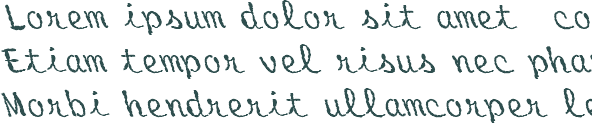 Lorem ipsum dolor sit amet
Etiam tempor vel risus nec
Morbi hendrerit ullamcorper